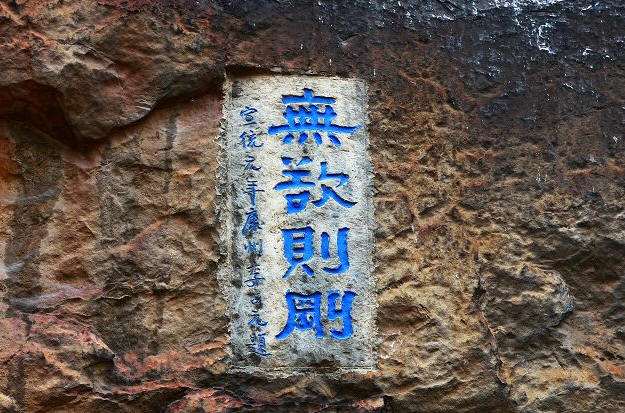 無欲則剛
宣統元年廣州李